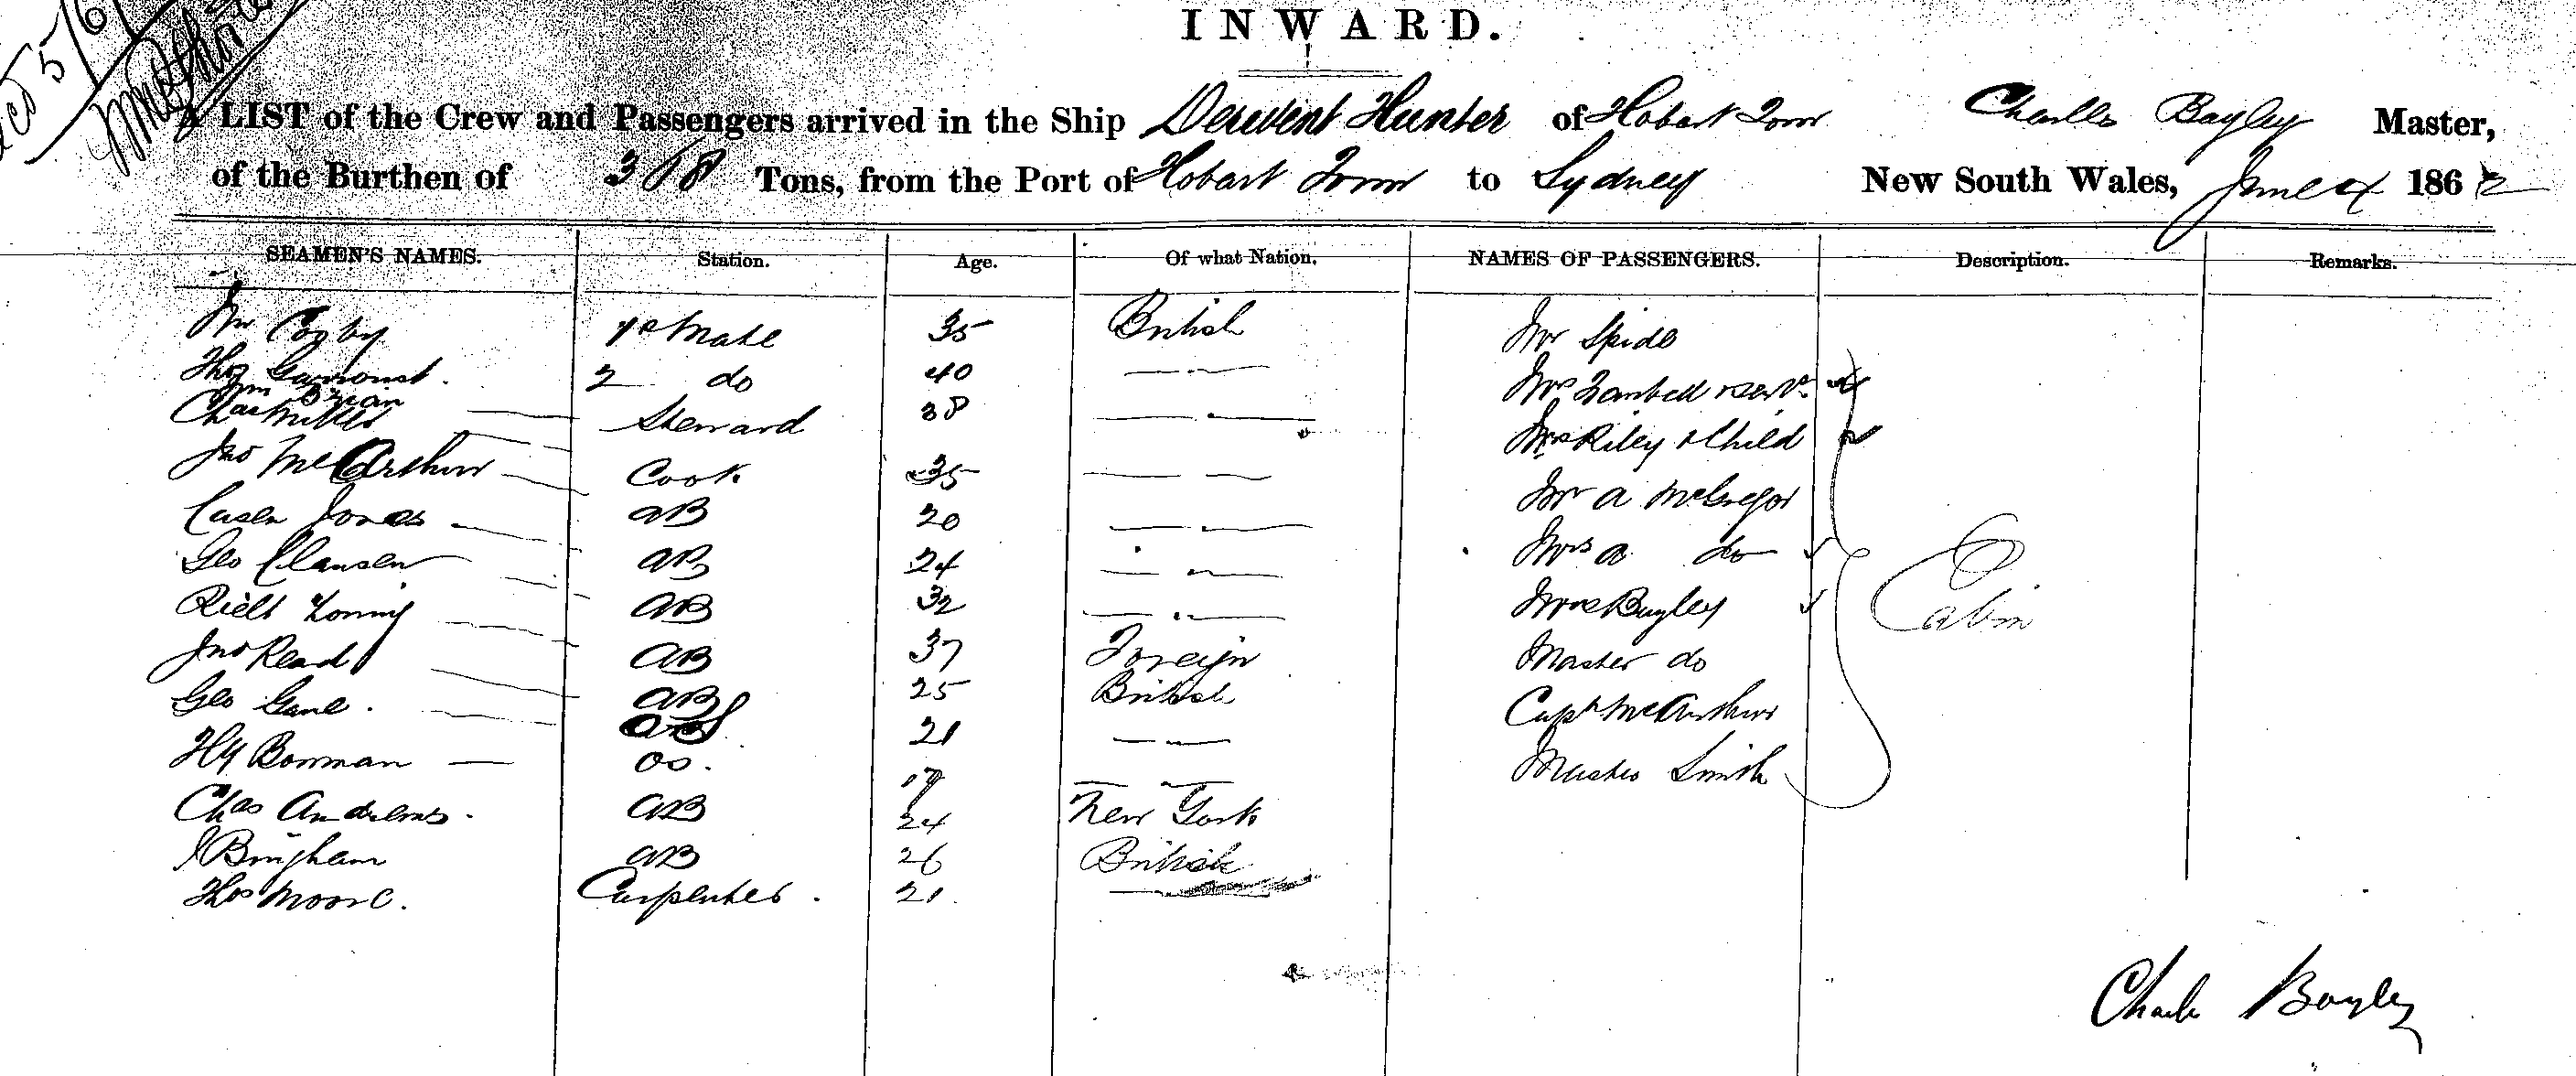 INWARD.
A LIST of the Crew and Passengers arrived in the Ship Derwent Hunter of Hobart Town Charles Bayley Master,
of the Burthen of 368 Tons, from the Port of Hobart Town to Sydney New South Wales, June 4 1862
SEAMEN'S NAMES. Station. Age. Of what Nation. NAMES OF PASSENGERS. Description. Remarks.
Wm Cosby 1st Mate 35 British Mr Spide
Thos 2 do 40 — Mrs
Wm Brian
Chas Miller Steward 38 — Mrs Riley & Child
Jno McArthur Cook 35 — Mr A McGregor
Jones AB 20 — Mrs A do
Geo Clausen AB 24 — Cabin
AB 32 — Mrs Bayley
Jno Read AB 37 Foreign Master do
Geo Gane AB 25 British Capt McArthur
21 —
Hy Bowman OS. 17 — Master Smith
Chas Andrews. AB 24 New York
J Bingham AB 26 British
Thos Moore. Carpenter. 21. —
Charles Bayley